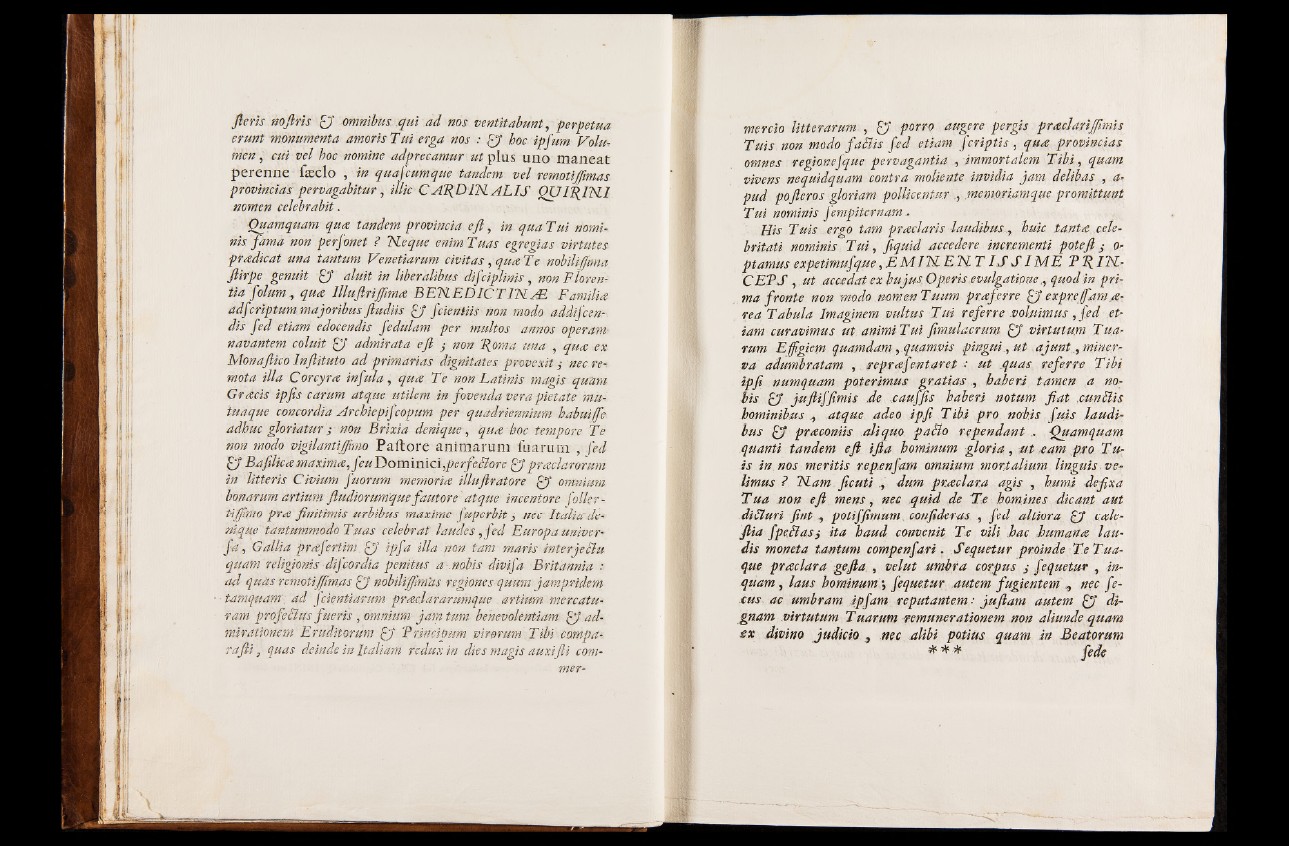 ſteris noſtris & omnibus qui ad nos ventitabunt, perpetua
erunt monumenta amoris Tui erga nos : & hoc ipſum Volu-
men, cui vel hoc nomine adprecantur ut plus uno maneat
perenne ſæclo , in quaſcumque tandem vel remotiſſimas
provincias pervagabitur, illic CARDINALIS QUIRINI
nomen celebrabit.
Quamquam quæ tandem provincia eſt, in qua Tui nomi-
nis fama non perſonet ? Neque enim Tuas egregias virtutes
prædicat una tantum Venetiarum civitas, quæ Te nobiliſſima
ſtirpe genuit & aluit in liberalibus diſciplinis, non Floren-
tia ſolum, quæ Illuſtriſſimæ BENEDICTINÆ Familiæ
adſcriptum majoribus ſtudiis & ſcientiis non modo addiſcen-
dis ſed etiam edocendis ſedulam per multos annos operam
navantem coluit & admirata eſt ; non Roma una , quæ ex
Monaſtico Inſtituto ad primarias dignitates provexit; nec re-
mota illa Corcyræ inſula, quæ Te non Latinis magis quam
Græcis ipſis carum atque utilem in fovenda vera pietate mu-
tuaque concordia Archiepiſcopum per quadriennium habuiſſe
adhuc gloriatur; non Brixia denique, quæ hoc tempore Te
non modo vigilantiſſimo Paſtore animarum ſuarum , ſed
& Baſilicæ maximæ, ſeu Dominici, perfectore & præclarorum
in litteris Civium ſuorum memoriæ illuſtratore & omnium
bonarum artium ſtudiorumque fautore atque incentore ſoller-
tiſſimo præ finitimis urbibus maxime ſuperbit; nec Italia de-
nique tantummodo Tuas celebrat laudes, ſed Europa univer-
ſa, Gallia præſertim & ipſa illa non tam maris interjectu
quam religionis diſcordia penitus a nobis diviſa Britannia :
ad quas remotiſſimas & nobiliſſimas regiones quum jampridem
tamquam ad ſcientiarum præclararumque artium mercatu-
ram profectus fueris , omnium jam tum benevolentiam & ad-
mirationem Eruditorum & Principum virorum Tibi compa-
raſti, quas deinde in Italiam redux in dies magis auxiſti com-
mer-
mercio litterarum , & porro augere pergis præclariſſimis
Tuis non modo factis ſed etiam ſcriptis , quæ provincias
omnes regioneſque pervagantia , immortalem Tibi, quam
vivens nequidquam contra moliente invidia jam delibas , a-
pud poſteros gloriam pollicentur , memoriamque promittunt
Tui nominis ſempiternam.
His Tuis ergo tam præclaris laudibus, huic tantæ cele-
britati nominis Tui, ſiquid accedere incrementi poteſt; o-
ptamus expetimuſque, EMINENTISSIME PRIN-
CEPS, ut accedat ex hujus Operis evulgatione, quod in pri-
ma fronte non modo nomen Tuum præferre & expreſſam æ-
rea Tabula Imaginem vultus Tui referre voluimus, ſed et-
iam curavimus ut animi Tui ſimulacrum & virtutum Tua-
rum Effigiem quamdam, quamvis pingui, ut ajunt, miner-
va adumbratam , repræſentaret : ut quas referre Tibi
ipſi numquam poterimus gratias , haberi tamen a no-
bis & juſtiſſimis de cauſſis haberi notum fiat cunctis
hominibus , atque adeo ipſi Tibi pro nobis ſuis laudi-
bus & præconiis aliquo pacto rependant . Quamquam
quanti tandem eſt iſta hominum gloria, ut eam pro Tu-
is in nos meritis repenſam omnium mortalium linguis ve-
limus ? Nam ſicuti , dum præclara agis , humi defixa
Tua non eſt mens, nec quid de Te homines dicant aut
dicturi ſint , potiſſimum conſideras , ſed altiora & cæle-
ſtia ſpectas; ita haud convenit Te vili hac humanæ lau-
dis moneta tantum compenſari. Sequetur proinde Te Tua-
que præclara geſta , velut umbra corpus ; ſequetur , in-
quam, laus hominum; ſequetur autem fugientem , nec ſe-
cus ac umbram ipſam reputantem: juſtam autem & di-
gnam virtutum Tuarum remunerationem non aliunde quam
ex divino judicio , nec alibi potius quam in Beatorum
*** ſede